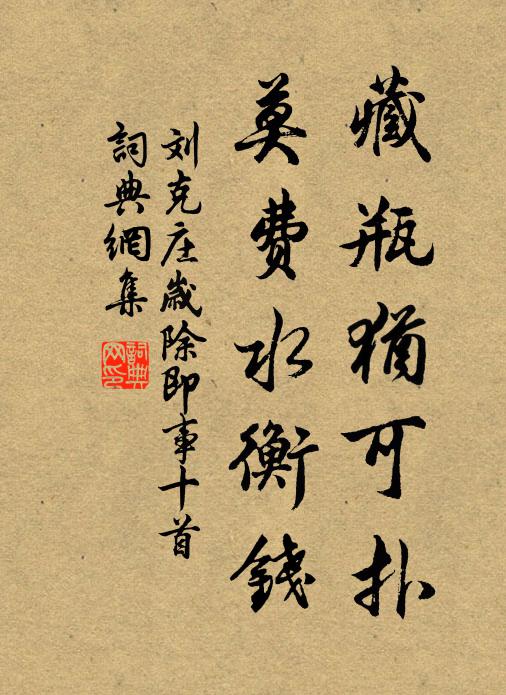 藏瓶猶可扑
莫費水衡錢
刘克庄歲除即事十首
詞典網集
詞典
网印